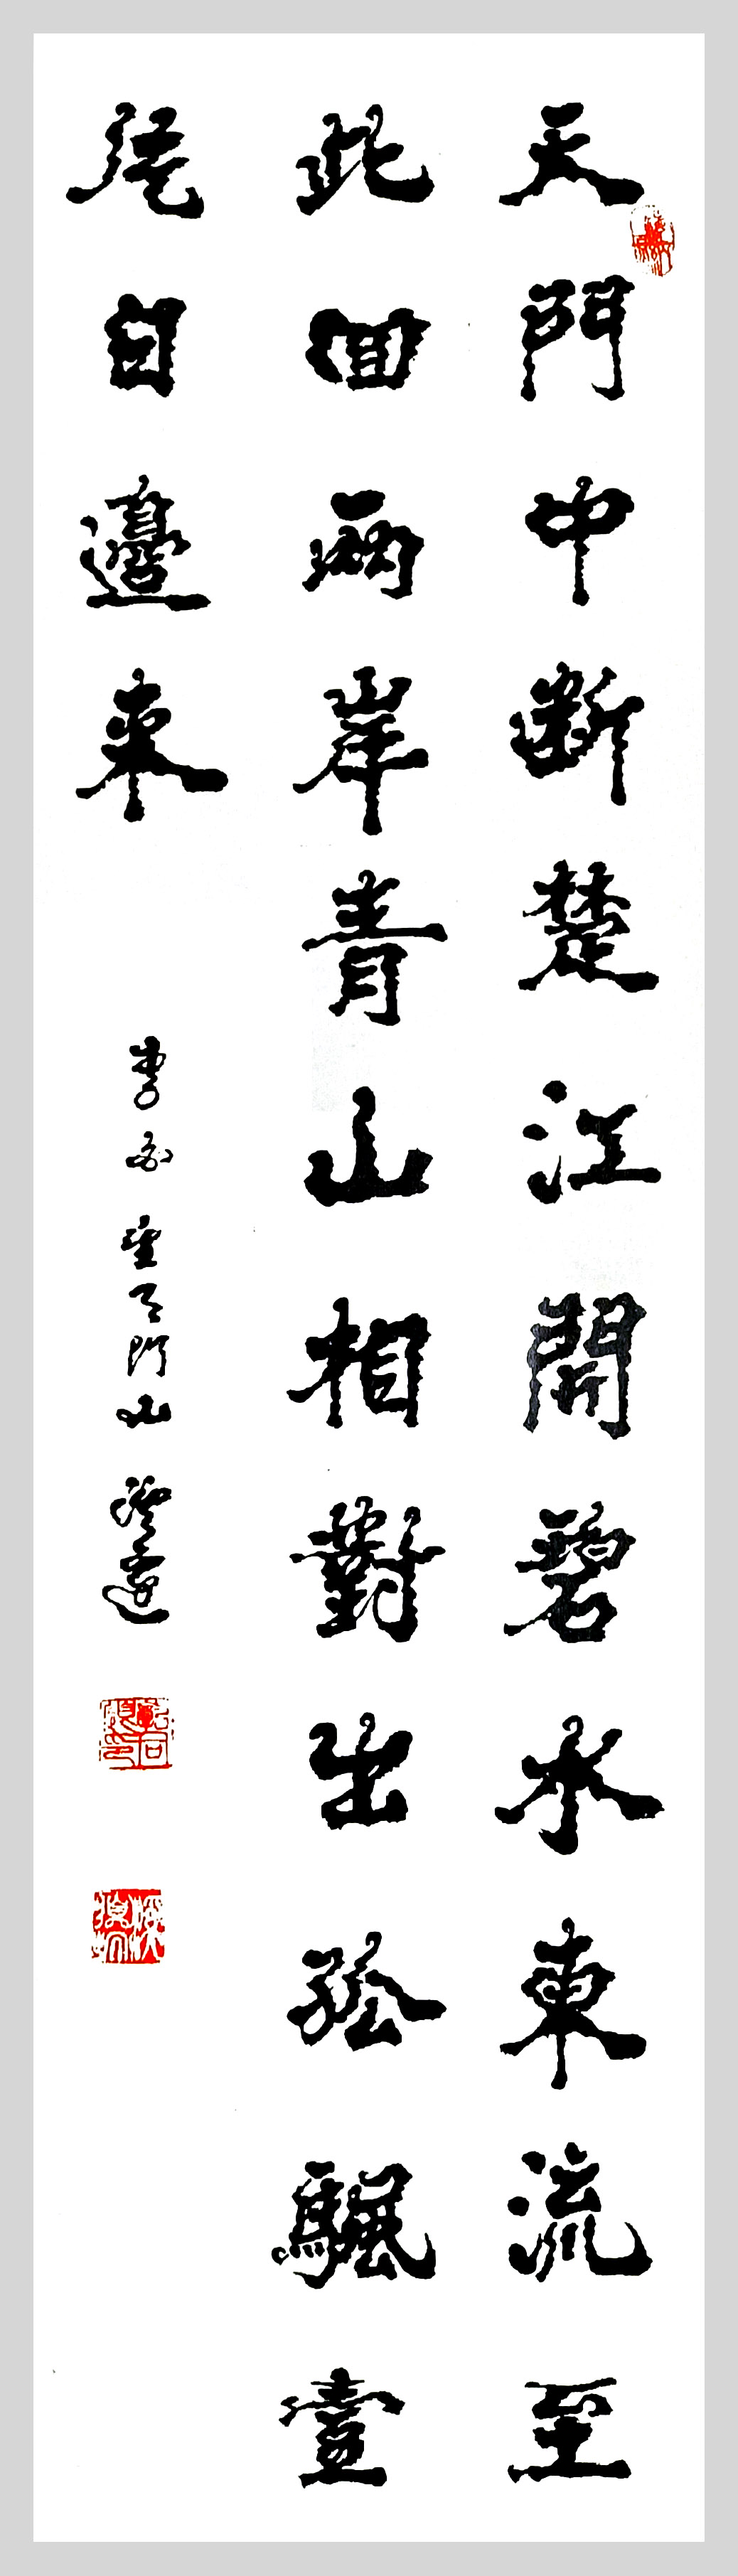 天門中断楚江開碧水東流至
此回兩岸青山相對出孤颿壹
從日邊來
李白望天門山